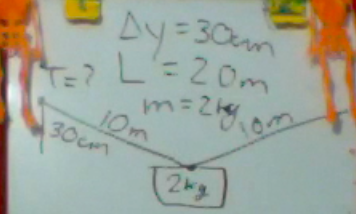 Δy = 30cm
T = ?
L = 20m
m = 2kg
10m
10m
30cm
2kg